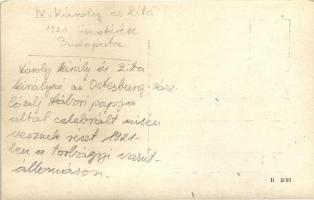 IV. Károly és Zita
1920
Budapestre
Károly király és Zita
királyné az Ostenburg-zász-
lóalj tábori papja
által celebrált misén
vesznek részt 1921-
ben a torbágyi vasút-
állomáson.